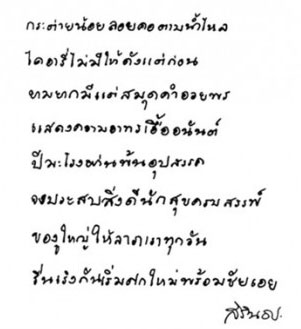 กระต่ายน้อยลอยคอตามน้ำไหล
ไดอารี่ไม่มีให้ดังแต่ก่อน
ยามยากมีแต่สมุดคำอวยพร
แสดงความอาทรเอื้ออนันต์
ปีมะโรงผ่านพ้นอุปสรรค
จงประสบสิ่งดีนักสุขครบสรรพ์
ของใหญ่ให้ลาภเราทุกวัน
รื่นเริงกันเริ่มศกใหม่พร้อมชัยเอย
สิรินธร